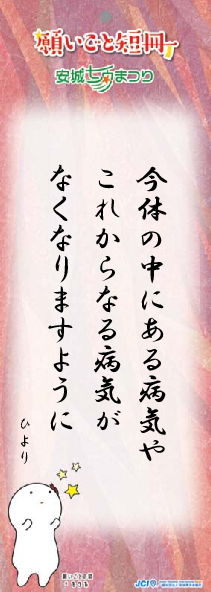 願いごと短冊
安城七夕まつり
今体の中にある病気や
これからなる病気が
なくなりますように
ひより
願いごと短冊
JCI